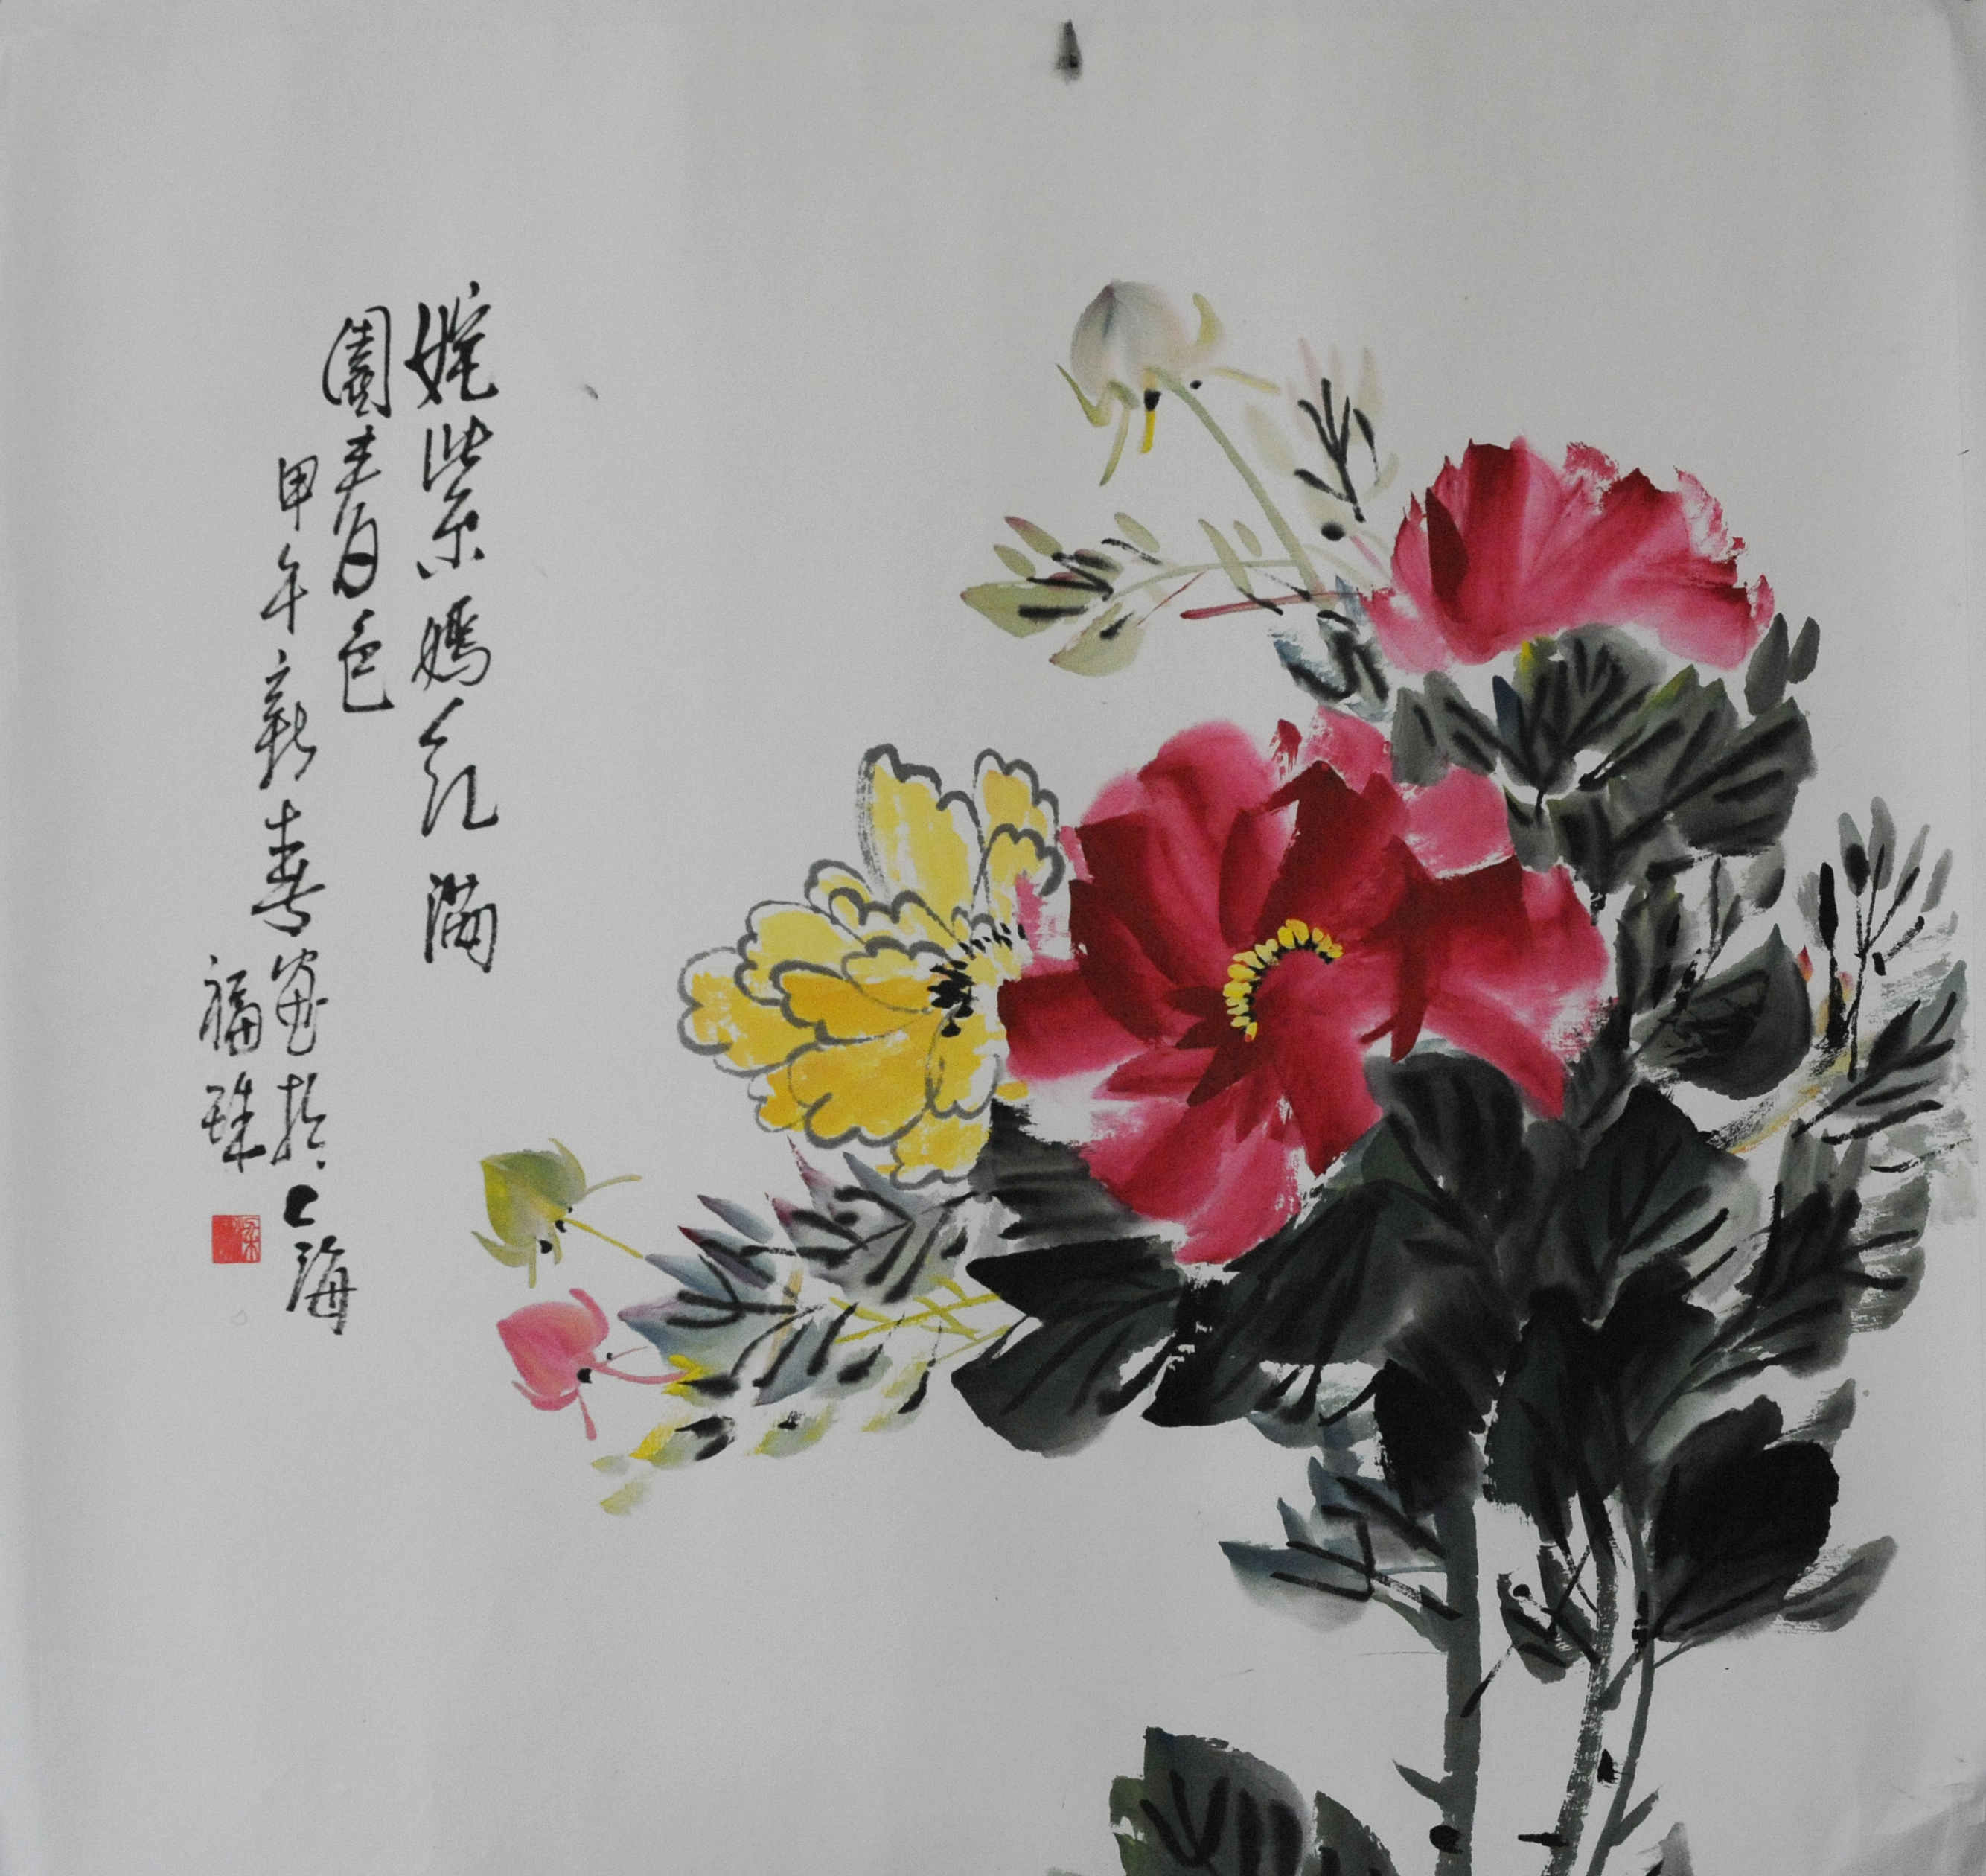 姹紫嫣红满
園春色
甲午新春於上海
福珠